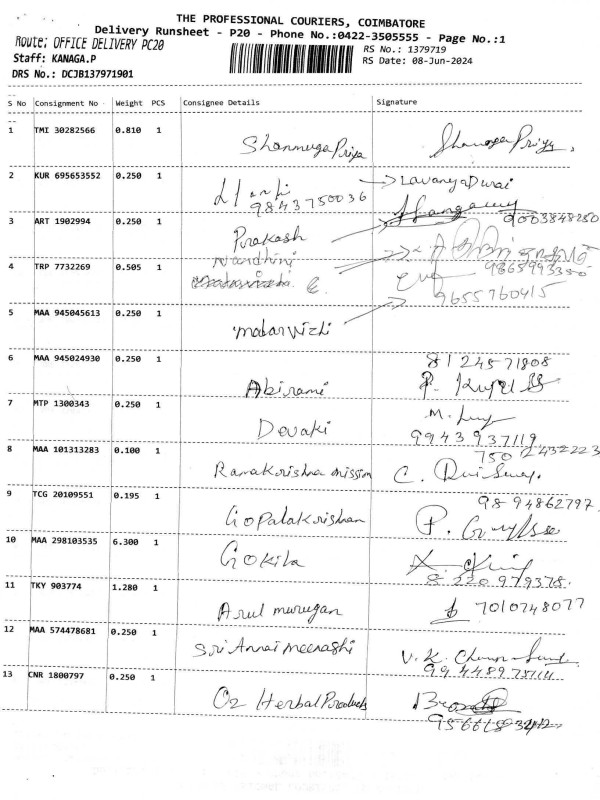 THE PROFESSIONAL COURIERS, COIMBATORE
Delivery Runsheet - P20 - Phone No.:0422-3505555 - Page No.:1
Route: OFFICE DELIVERY PC20
RS No.: 1379719
Staff: KANAGA.P
RS Date: 08-Jun-2024
DRS No.: DCJB137971901
S No Consignment No Weight PCS Consignee Details Signature
1 TMI 30282566 0.810 1
ShanmugaPriya
2 KUR 695653552 0.250 1
LavanyaDurai
9843750036
3 ART 1902994 0.250 1
9003848250
Prakash
4 TRP 7732269 0.505 1
Nandhini
9865993350
9655760415
5 MAA 945045613 0.250 1
malarvizhi
6 MAA 945024930 0.250 1
8124571808
Abirami
7 MTP 1300343 0.250 1
Devaki
9943937119
8 MAA 101313283 0.100 1
7502432223
Ramakrishna mission
9 TCG 20109551 0.195 1
9894862797
Gopalakrishnan
10 MAA 298103535 6.300 1
Gokila
8220979378
11 TKY 903774 1.280 1
Arul murugan 7010748077
12 MAA 574478681 0.250 1
Sri Annai meenashi
13 CNR 1800797 0.250 1
O2 Herbal Products